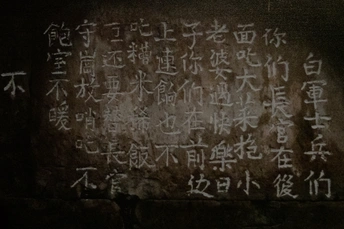 白軍士兵们
你们長官在後
面吃大菜抱小
老婆過快樂日
子你们在前边
上連餉也不
吃糙米
了还要替長官
守崗放哨吃不
飽穿不暖
不